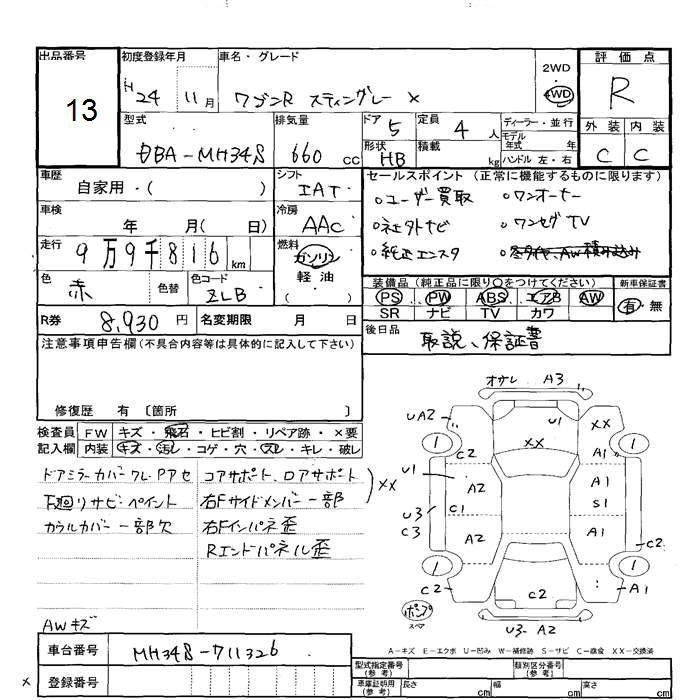 出品番号 初度登録年月 車名・グレード
13 H 24 11月 ワゴンR スティングレー X 2WD 4WD
評価点
R
外装 内装
C C
型式 排気量 ドア 5 定員 4人 ディーラー・並行
DBA-MH34S 660cc 形状 HB 積載 kg モデル年式 年
ハンドル 左・右
車歴 シフト
自家用・( ) IAT
セールスポイント (正常に機能するものに限ります)
。ユーザー買取 。ワンオーナー
。社外ナビ 。ワンセグTV
。純正エンスタ 。冬タイヤ、AW積み込み
車検 年 月( 日) 冷房 AAC
走行 9万9千816km 燃料 ガソリン 軽油 ( )
色 赤 色替 色コード ZLB
R券 8,930円 名変期限 月 日
装備品 (純正品に限り○をつけてください) 新車保証書
PS PW ABS エアB AW 有・無
SR ナビ TV カワ
後日品 取説、保証書
注意事項申告欄(不具合内容等は具体的に記入して下さい)
修復歴 有 〔箇所 〕
検査員 FW キズ・飛石・ヒビ割・リペア跡・×要
記入欄 内装 キズ・汚レ・コゲ・穴・スレ・キレ・破レ
ドアミラーカバーワレ.Pアセ コアサポート、ロアサポート
下廻リサビ・ペイント 右Fサイドメンバー一部 XX
カウルカバー一部欠 右Fインパネ歪
Rエンドパネル歪
AWキズ
オサレ A3
UA2 U1 XX
1 C2 XX A1 1
U1 A2 A1
S1
U3 C1
C3 A2 A1 C2
1 1
C2 C2 A1
ポンプ
スペア
U3-A2
A-キズ E-エクボ U-凹み W-補修跡 S-サビ C-腐食 XX-交換済
車台番号 MH34S-711326
型式指定番号 (参考) 類別区分番号 (参考)
× 登録番号
車庫証明用 (参考) 長さ cm 幅 cm 高さ cm